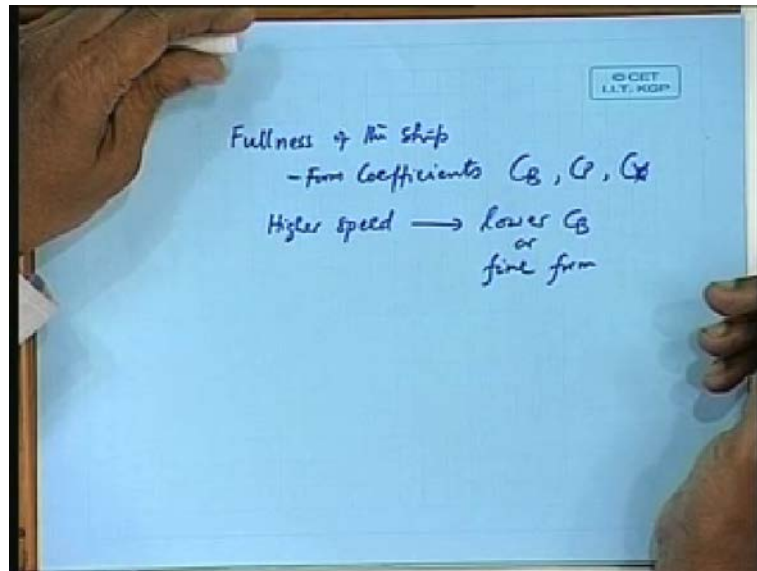 © CET
I.I.T. KGP
Fullness of the Ship
- Form Coefficients C_B, C_P, C_X
Higher speed → lower C_B
or
fine form